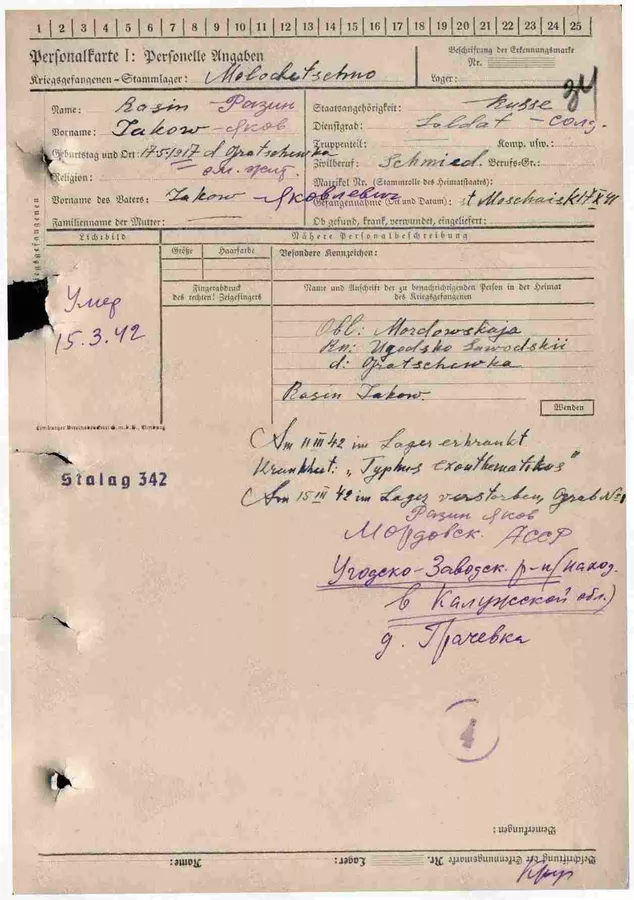 1 2 3 4 5 6 7 8 9 10 11 12 13 14 15 16 17 18 19 20 21 22 23 24 25
Personalkarte I: Personelle Angaben
Kriegsgefangenen-Stammlager: Molodetschno
Beschriftung der Erkennungsmarke
Nr.
Lager:
34
Name: Rasin - Разин
Vorname: Jakow - Яков
Geburtstag und Ort: 17.5.1917 d. Gratschewka
Religion:
Vorname des Vaters: Jakow - Яковлевич
Familienname der Mutter:
Staatsangehörigkeit: Russe
Dienstgrad: Soldat - солд.
Truppenteil: Komp. usw.:
Zivilberuf: Schmied. Berufs-Gr.:
Matrikel Nr. (Stammrolle des Heimatstaates):
Gefangennahme (Ort und Datum): st Moschaisk 17 X 41
Ob gesund, krank, verwundet, eingeliefert:
Lichtbild
Nähere Personalbeschreibung
Größe Haarfarbe Besondere Kennzeichen:
Fingerabdruck
des rechten! Zeigefingers
Name und Anschrift der zu benachrichtigenden Person in der Heimat
des Kriegsgefangenen
Умер
15.3.42
Obl: Mordowskaja
Rn: Ugodsko Sawodskii
d: Gratschewka
Rasin Jakow.
Wenden
Stalag 342
Am 11 III 42 im Lager erkrankt
Krankheit: „Typhus exanthematikus"
Am 15 III 42 im Lager verstorben, Grab No
Разин Яков
Мордовск. АССР
Угодско-Заводск. р-н (наход.
в Калужской обл.)
д. Грачевка
4
Bemerkungen:
Beschriftung der Erkennungsmarke Nr. Lager: Name: